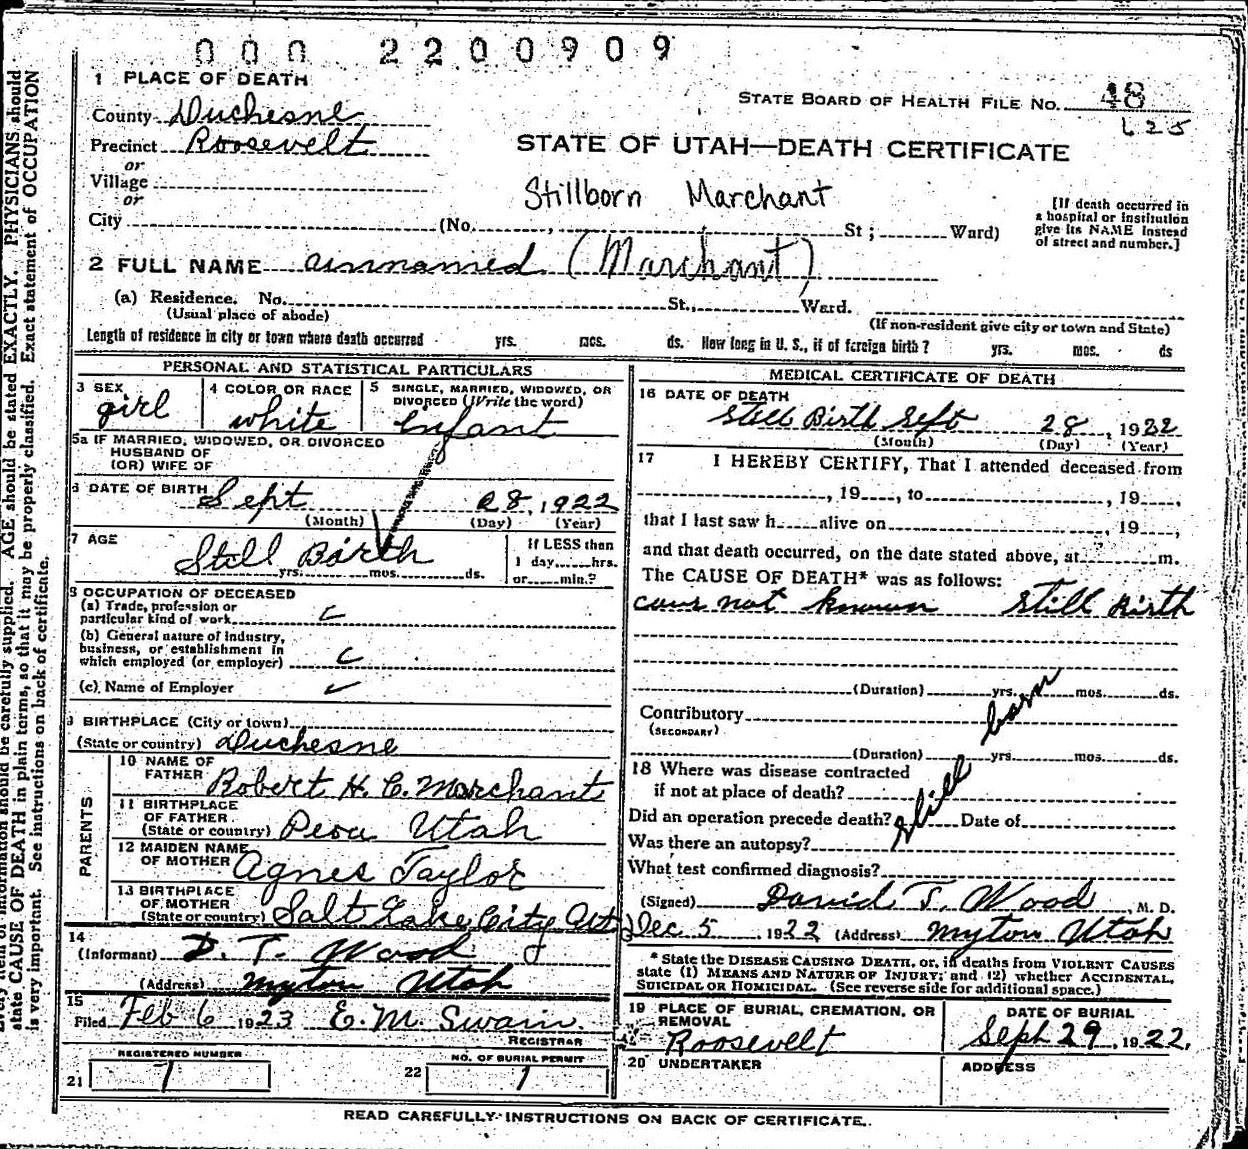 000 2200909
1 PLACE OF DEATH
STATE BOARD OF HEALTH FILE NO. 48
625
County Duchesne
Precinct Roosevelt
STATE OF UTAH—DEATH CERTIFICATE
or
Village
or
Stillborn Marchant
[If death occurred in
a hospital or institution
give its NAME instead
of street and number.]
City (No. , St ; Ward)
2 FULL NAME unnamed (Marchant)
(a) Residence. No. St., Ward.
(Usual place of abode) (If non-resident give city or town and State)
Length of residence in city or town where death occurred yrs. mos. ds. How long in U. S., if of foreign birth? yrs. mos. ds
PERSONAL AND STATISTICAL PARTICULARS
3 SEX girl
4 COLOR OR RACE white
5 SINGLE, MARRIED, WIDOWED, OR
DIVORCED (Write the word)
Infant
5a IF MARRIED, WIDOWED, OR DIVORCED
HUSBAND OF
(OR) WIFE OF
6 DATE OF BIRTH Sept 28, 1922
(Month) (Day) (Year)
7 AGE Still Birth
yrs. mos. ds.
If LESS than
1 day hrs.
or min.?
8 OCCUPATION OF DECEASED
(a) Trade, profession or
particular kind of work
(b) General nature of industry,
business, or establishment in
which employed (or employer)
(c) Name of Employer
9 BIRTHPLACE (City or town)
(State or country) Duchesne
PARENTS
10 NAME OF
FATHER Robert H. C. Marchant
11 BIRTHPLACE
OF FATHER
(State or country) Peoa Utah
12 MAIDEN NAME
OF MOTHER Agnes Taylor
13 BIRTHPLACE
OF MOTHER
(State or country) Salt Lake City Ut
14
(Informant) D. T. Wood
(Address) Myton Utah
15
Filed Feb 6 1923 E. M. Swain
REGISTRAR
REGISTERED NUMBER
21 1
NO. OF BURIAL PERMIT
22 1
MEDICAL CERTIFICATE OF DEATH
16 DATE OF DEATH
Still Birth Sept 28, 1922
(Month) (Day) (Year)
17 I HEREBY CERTIFY, That I attended deceased from
, 19 , to , 19 ,
that I last saw h alive on , 19 ,
and that death occurred, on the date stated above, at m.
The CAUSE OF DEATH* was as follows:
caus not known Still Birth
(Duration) yrs. mos. ds.
Contributory
(SECONDARY)
(Duration) yrs mos. ds.
still born
18 Where was disease contracted
if not at place of death?
Did an operation precede death? Date of
Was there an autopsy?
What test confirmed diagnosis?
(Signed) David T. Wood, M. D.
Dec 5 1922 (Address) Myton Utah
* State the DISEASE CAUSING DEATH, or, in deaths from VIOLENT CAUSES
state (1) MEANS AND NATURE OF INJURY; and (2) whether ACCIDENTAL,
SUICIDAL OR HOMICIDAL. (See reverse side for additional space.)
19 PLACE OF BURIAL, CREMATION, OR
REMOVAL
Roosevelt
DATE OF BURIAL
Sept 29, 1922.
20 UNDERTAKER
ADDRESS
READ CAREFULLY INSTRUCTIONS ON BACK OF CERTIFICATE.
information should be carefully supplied. AGE should be stated EXACTLY. PHYSICIANS should
state CAUSE OF DEATH in plain terms, so that it may be properly classified. Exact statement of OCCUPATION
is very important. See instructions on back of certificate.